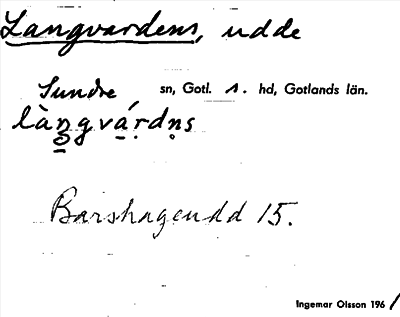 Langvardens, udde
Sundre sn, Gotl. 1. hd, Gotlands län.
làngvá̱rdṇs
Barshageudd 15.
Ingemar Olsson 1961